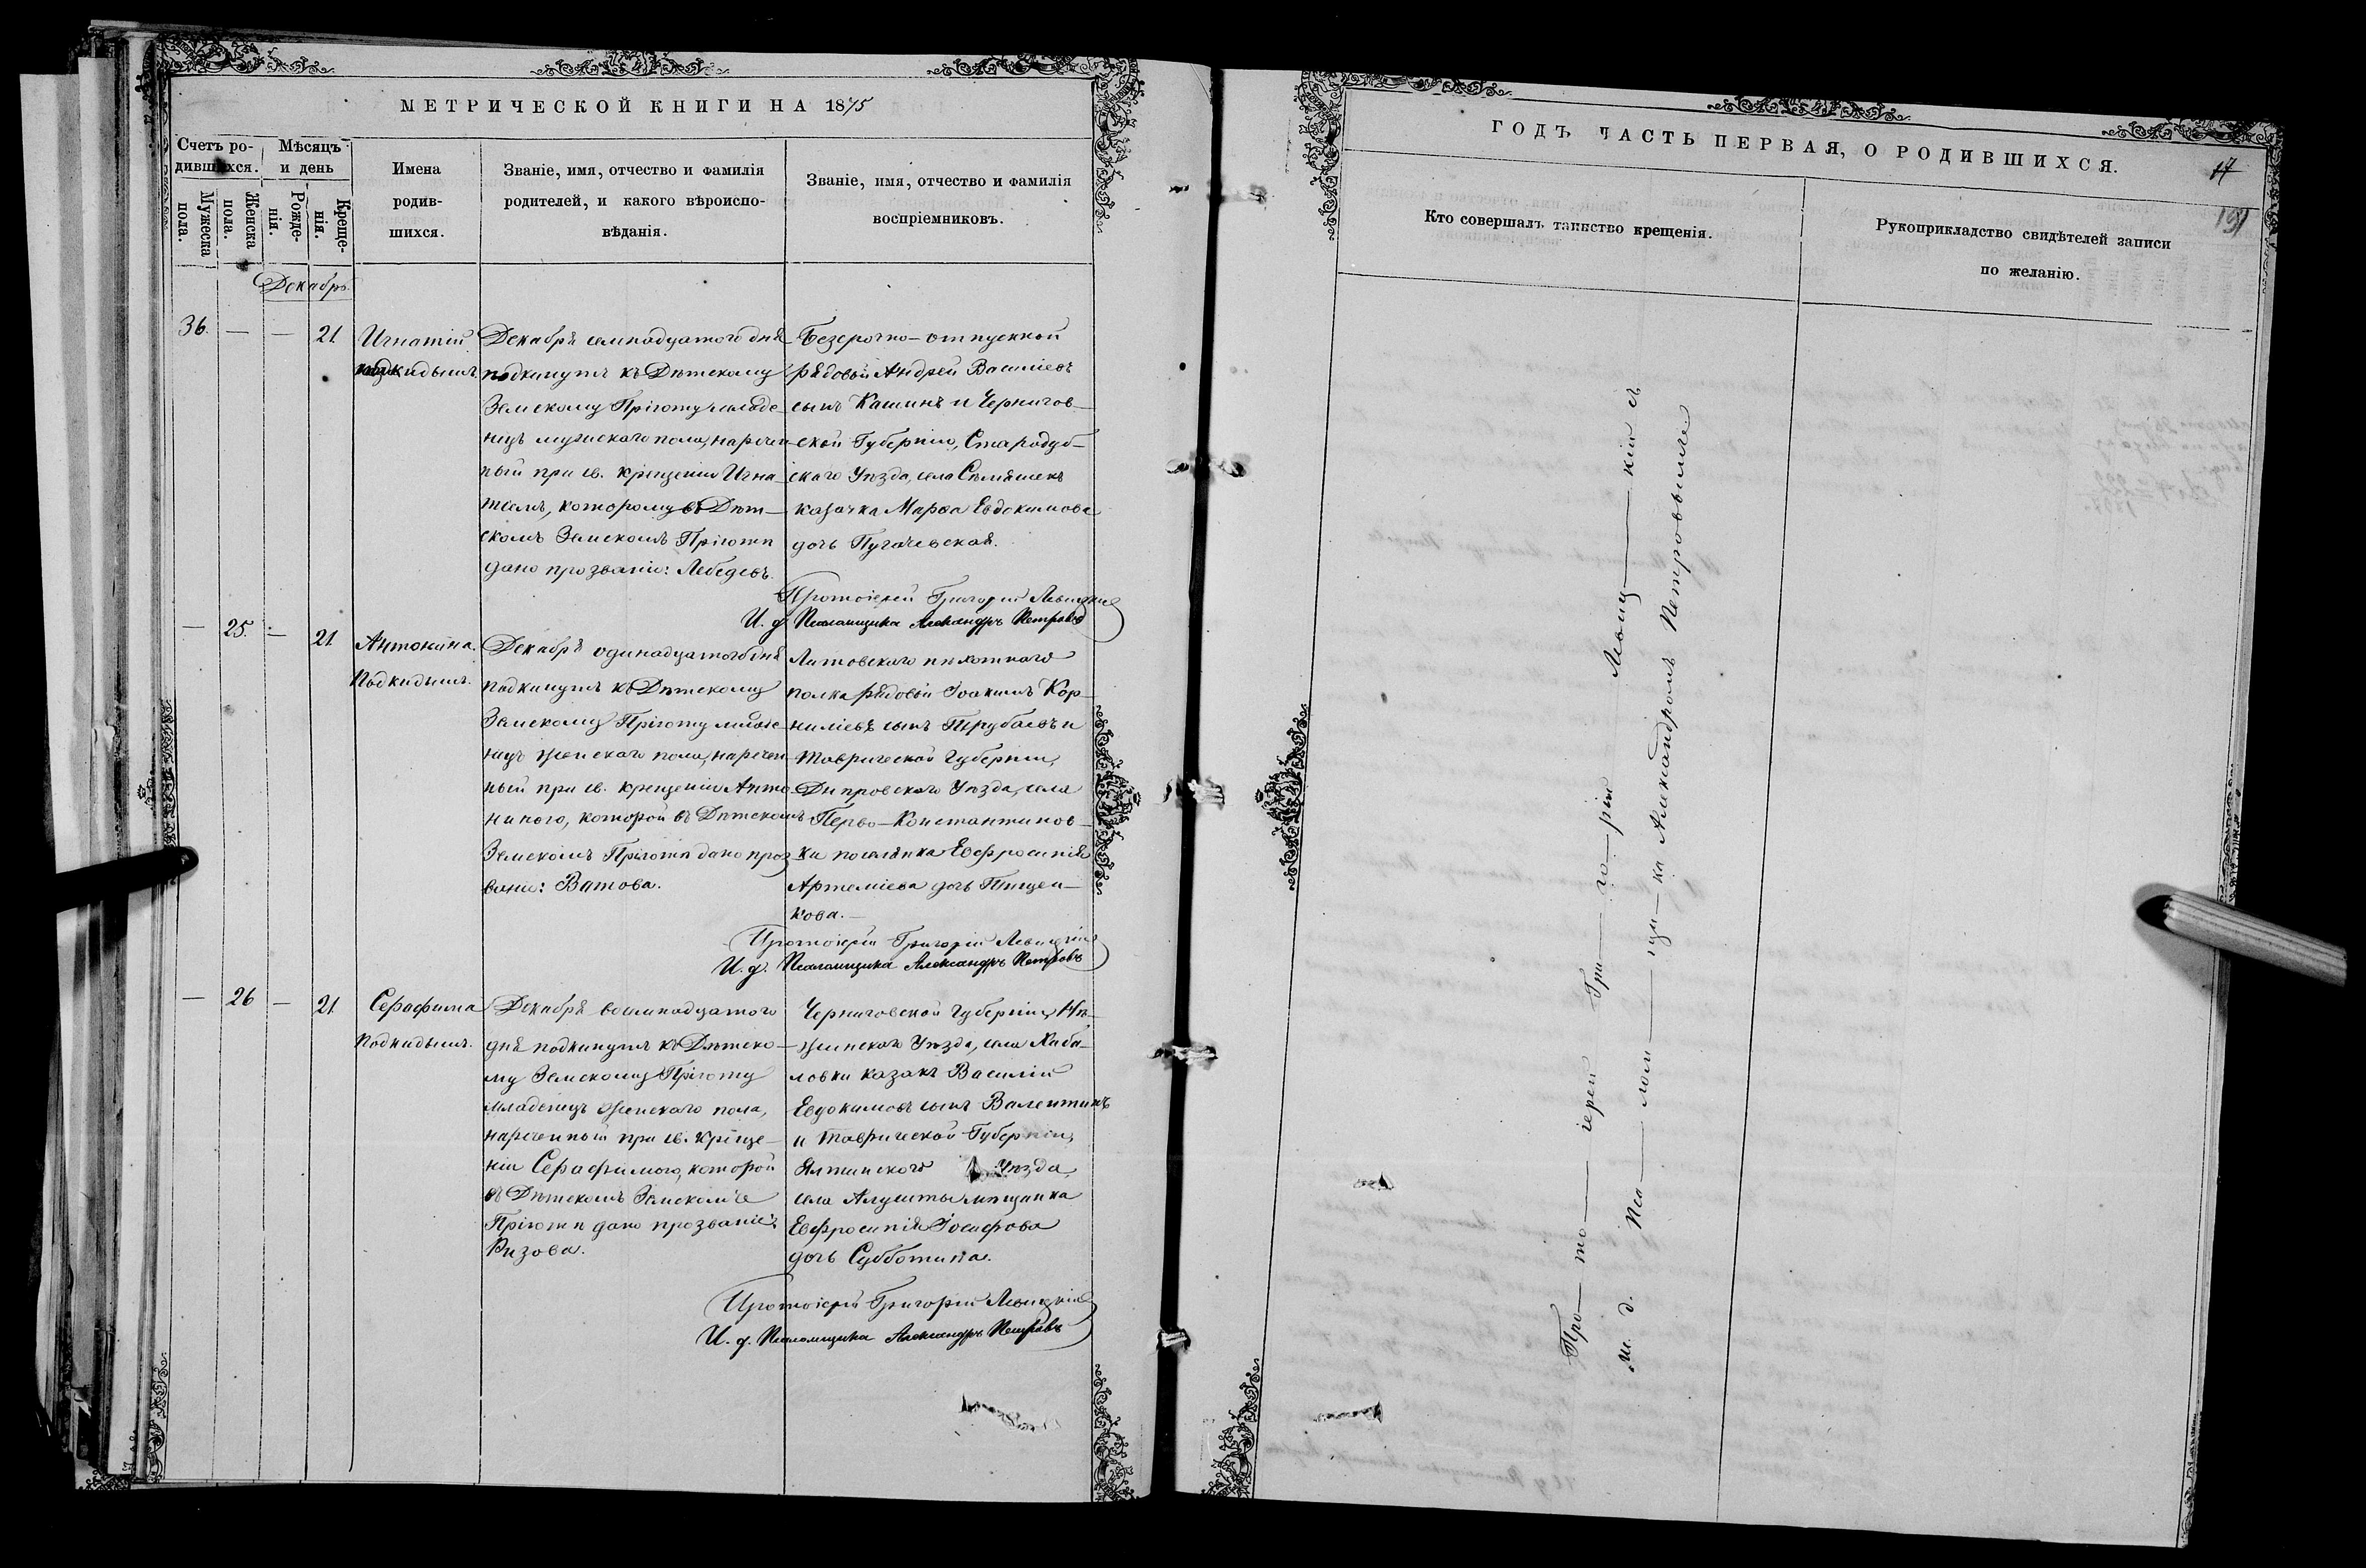 МЕТРИЧЕСКОЙ КНИГИ НА 1875
Счетъ ро-
дившихся.
Мѣсяцъ
и день
Мужеска
пола.
Женска
пола.
Рожде-
нія.
Креще-
нія.
Имена
родив-
шихся.
Званіе, имя, отчество и фамилія
родителей, и какого вѣроиспо-
вѣданія.
Званіе, имя, отчество и фамилія
воспріемниковъ.
Декабрь
36. — — 21
Игнатій
подкидышъ.
Декабря семнадцатого дня
подкинутъ къ Дѣтскому
Земскому Пріюту младе-
нецъ мужескаго пола, наречен-
ный при св. крещеніи Игна-
тіемъ, которому въ Дѣт-
скомъ Земскомъ Пріютѣ
дано прозваніе: Лебедевъ.
Безсрочно-отпускной
рядовой Андрей Васильевъ
сынъ Кашинъ и Чернигов-
ской Губерніи, Стародуб-
скаго Уѣзда, села
казачка Марѳа Евдокимова
дочь Пугачевская.
Протоіерей Григорій Левицкій
И. д. Псаломщика Александръ Петровъ
— 25. — 21
Антонина.
Подкидышъ.
Декабря одинадцатого дня
подкинутъ къ Дѣтскому
Земскому Пріюту младе-
нецъ женскаго пола, наречен-
ный при св. крещеніи Анто-
ниною, которой въ Дѣтскомъ
Земскомъ Пріютѣ дано проз-
ваніе: Ватова.
Литовскаго пѣхотнаго
полка рядовой Іоакимъ Кор-
ниліевъ сынъ Трубаевъ и
Таврической Губерніи,
Днѣпровскаго Уѣзда, села
Перво-Константинов-
ки поселянка Евфросинія
Артеміева дочь
кова.—
Протоіерей Григорій Левицкій
И. д. Псаломщика Александръ Петровъ
— 26 — 21
Серафима
Подкидышъ.
Декабря восемнадцатого
дня подкинутъ къ Дѣтско-
му Земскому Пріюту
младенецъ женскаго пола,
нареченный при св. креще-
ніи Серафимою, которой
въ Дѣтскомъ Земскомъ
Пріютѣ дано прозваніе:
Ризова.
Черниговской Губерніи, Нѣ-
жинскаго Уѣзда, села
казакъ Василій
Евдокимовъ сынъ Валентинъ
и Таврической Губерніи,
Ялтинскаго Уѣзда,
села Алушты мѣщанка
Евфросинія Іосифова
дочь Субботина.
Протоіерей Григорій Левицкій
И. д. Псаломщика Александръ Петровъ
ГОДЪ ЧАСТЬ ПЕРВАЯ, О РОДИВШИХСЯ.
17
Кто совершалъ таинство крещенія.
Рукоприкладство свидѣтелей записи
по желанію.
Про—то—іерей Гри—го—рій Левиц—кій съ
и. д. Пса—лом—щи—ка Александромъ Петровымъ.